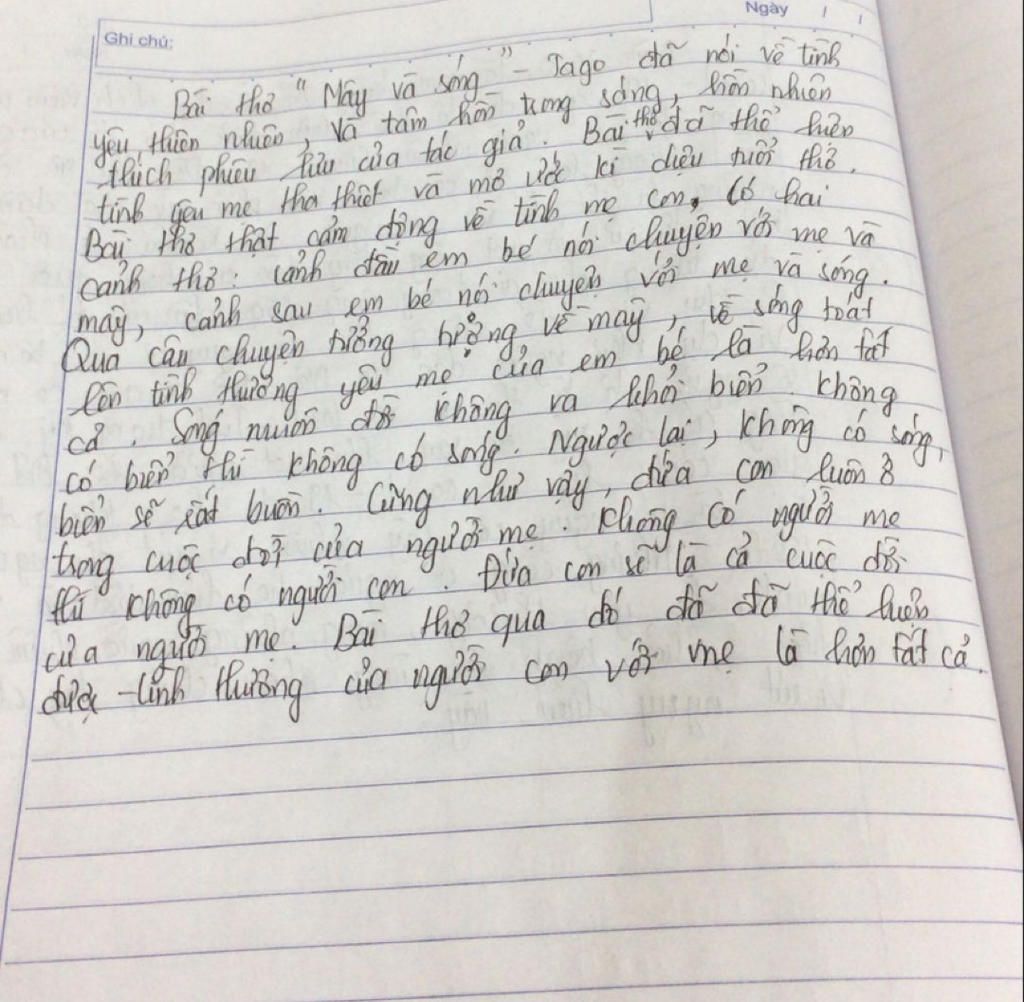 Ngày / /
Ghi chú:
Bài thơ "Mây và sóng" - Tago đã nói về tình
yêu thiên nhiên, và tâm hồn trong sáng, hồn nhiên
thích phiêu lưu của tác giả. Bài thơ đã thể hiện
tình yêu mẹ tha thiết và mơ ước kì diệu tuổi thơ.
Bài thơ thật cảm động về tình mẹ con, có hai
cảnh thơ: cảnh đầu em bé nói chuyện với mẹ và
mây, cảnh sau em bé nói chuyện với mẹ và sóng.
Qua câu chuyện tưởng tượng về mây, về sóng toát
lên tình thương yêu mẹ của em bé là hơn tất
cả. Sóng muôn đời không ra khỏi biển. Không
có biển thì không có sóng. Ngược lại, không có sóng,
biển sẽ rất buồn. Cũng như vậy, đứa con luôn ở
trong cuộc đời của người mẹ. Không có người mẹ
thì không có người con. Đứa con sẽ là cả cuộc đời
của người mẹ. Bài thơ qua đó đã đã thể hiện
được tình thương của người con với mẹ là hơn tất cả.